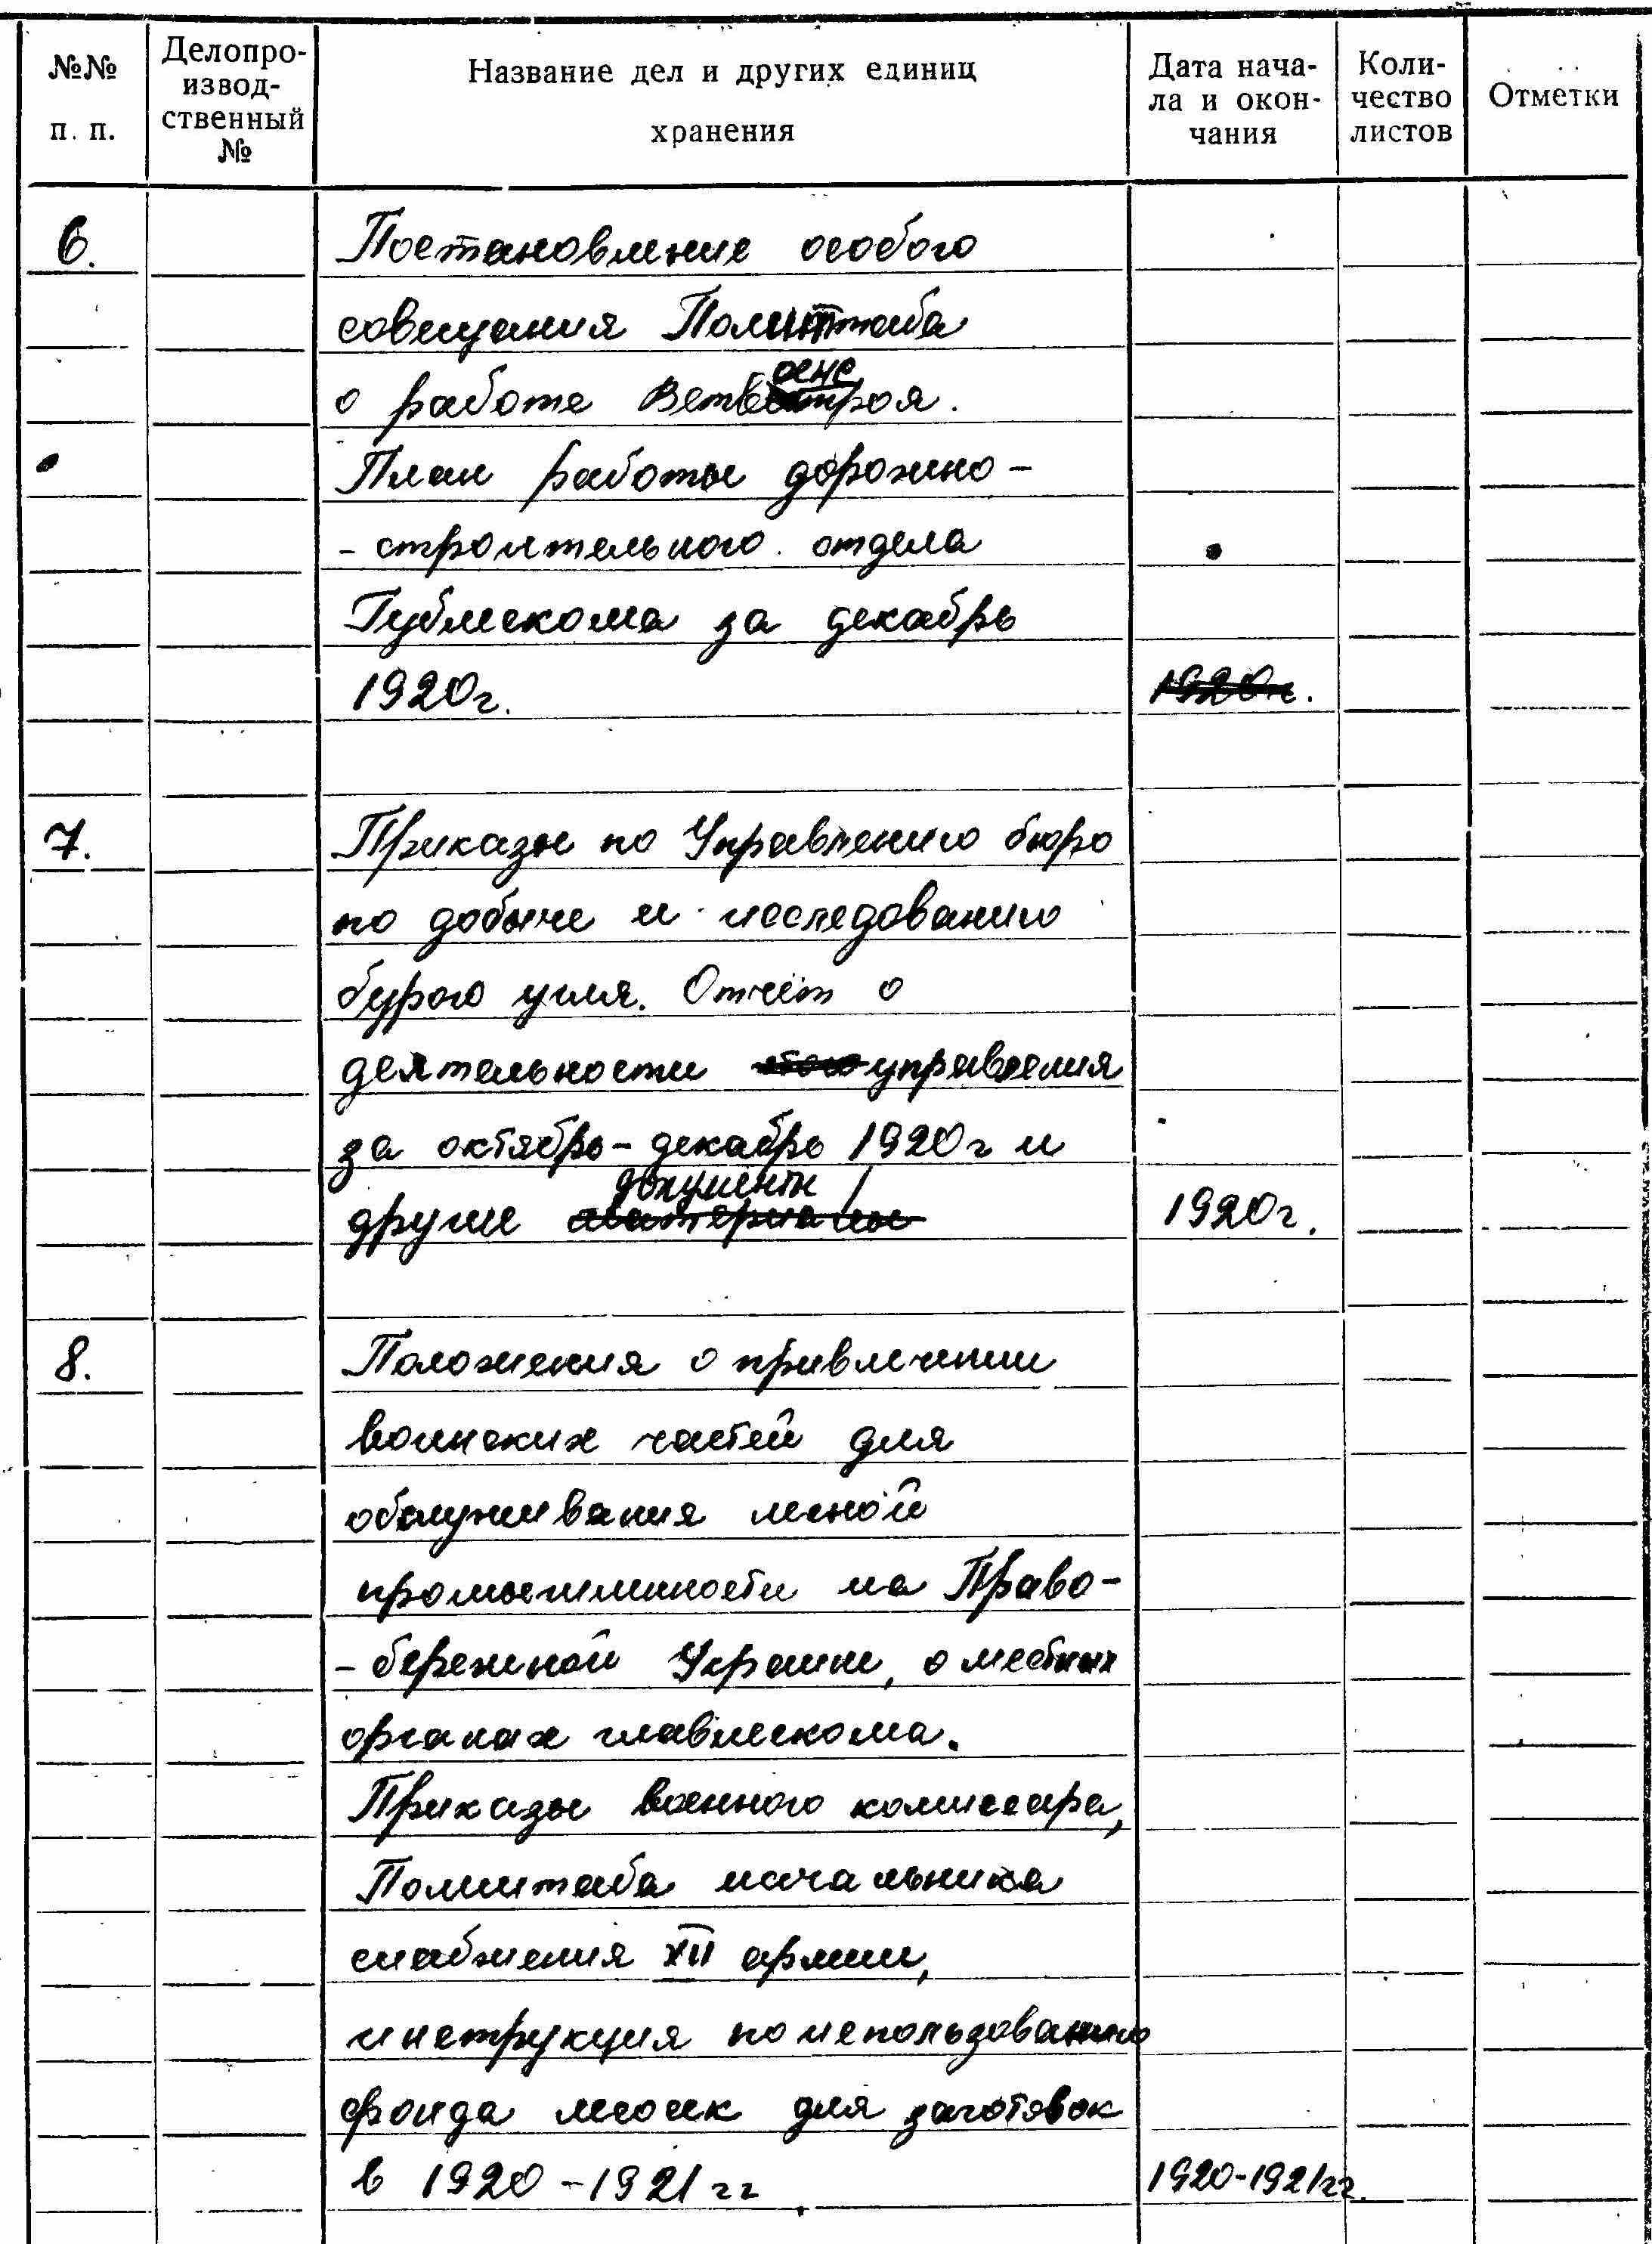 №№ п. п.
Делопро-
извод-
ственный
№
Название дел и других единиц
хранения
Дата нача-
ла и окон-
чания
Коли-
чество
листов
Отметки
6.
Постановление особого
совещания Полиштаба
о работе
План работы дорожно-
- строительного отдела
Гублескома за декабрь
1920г. 1920г.
7. Приказы по Управлению бюро
по добыче и исследованию
бурого угля. Отчёт о
деятельности этого управления
за октябрь - декабрь 1920г и
документы
другие материалы 1920г.
8. Положения о привлечении
воинских частей для
обслуживания лесной
промышленности на Право-
- бережной Украине, о местных
органах главлескома.
Приказы военного комиссара,
Полиштаба начальника
снабжения XII армии,
инструкция по использованию
фонда лесосек для заготовок
в 1920-1921 гг 1920-1921гг.